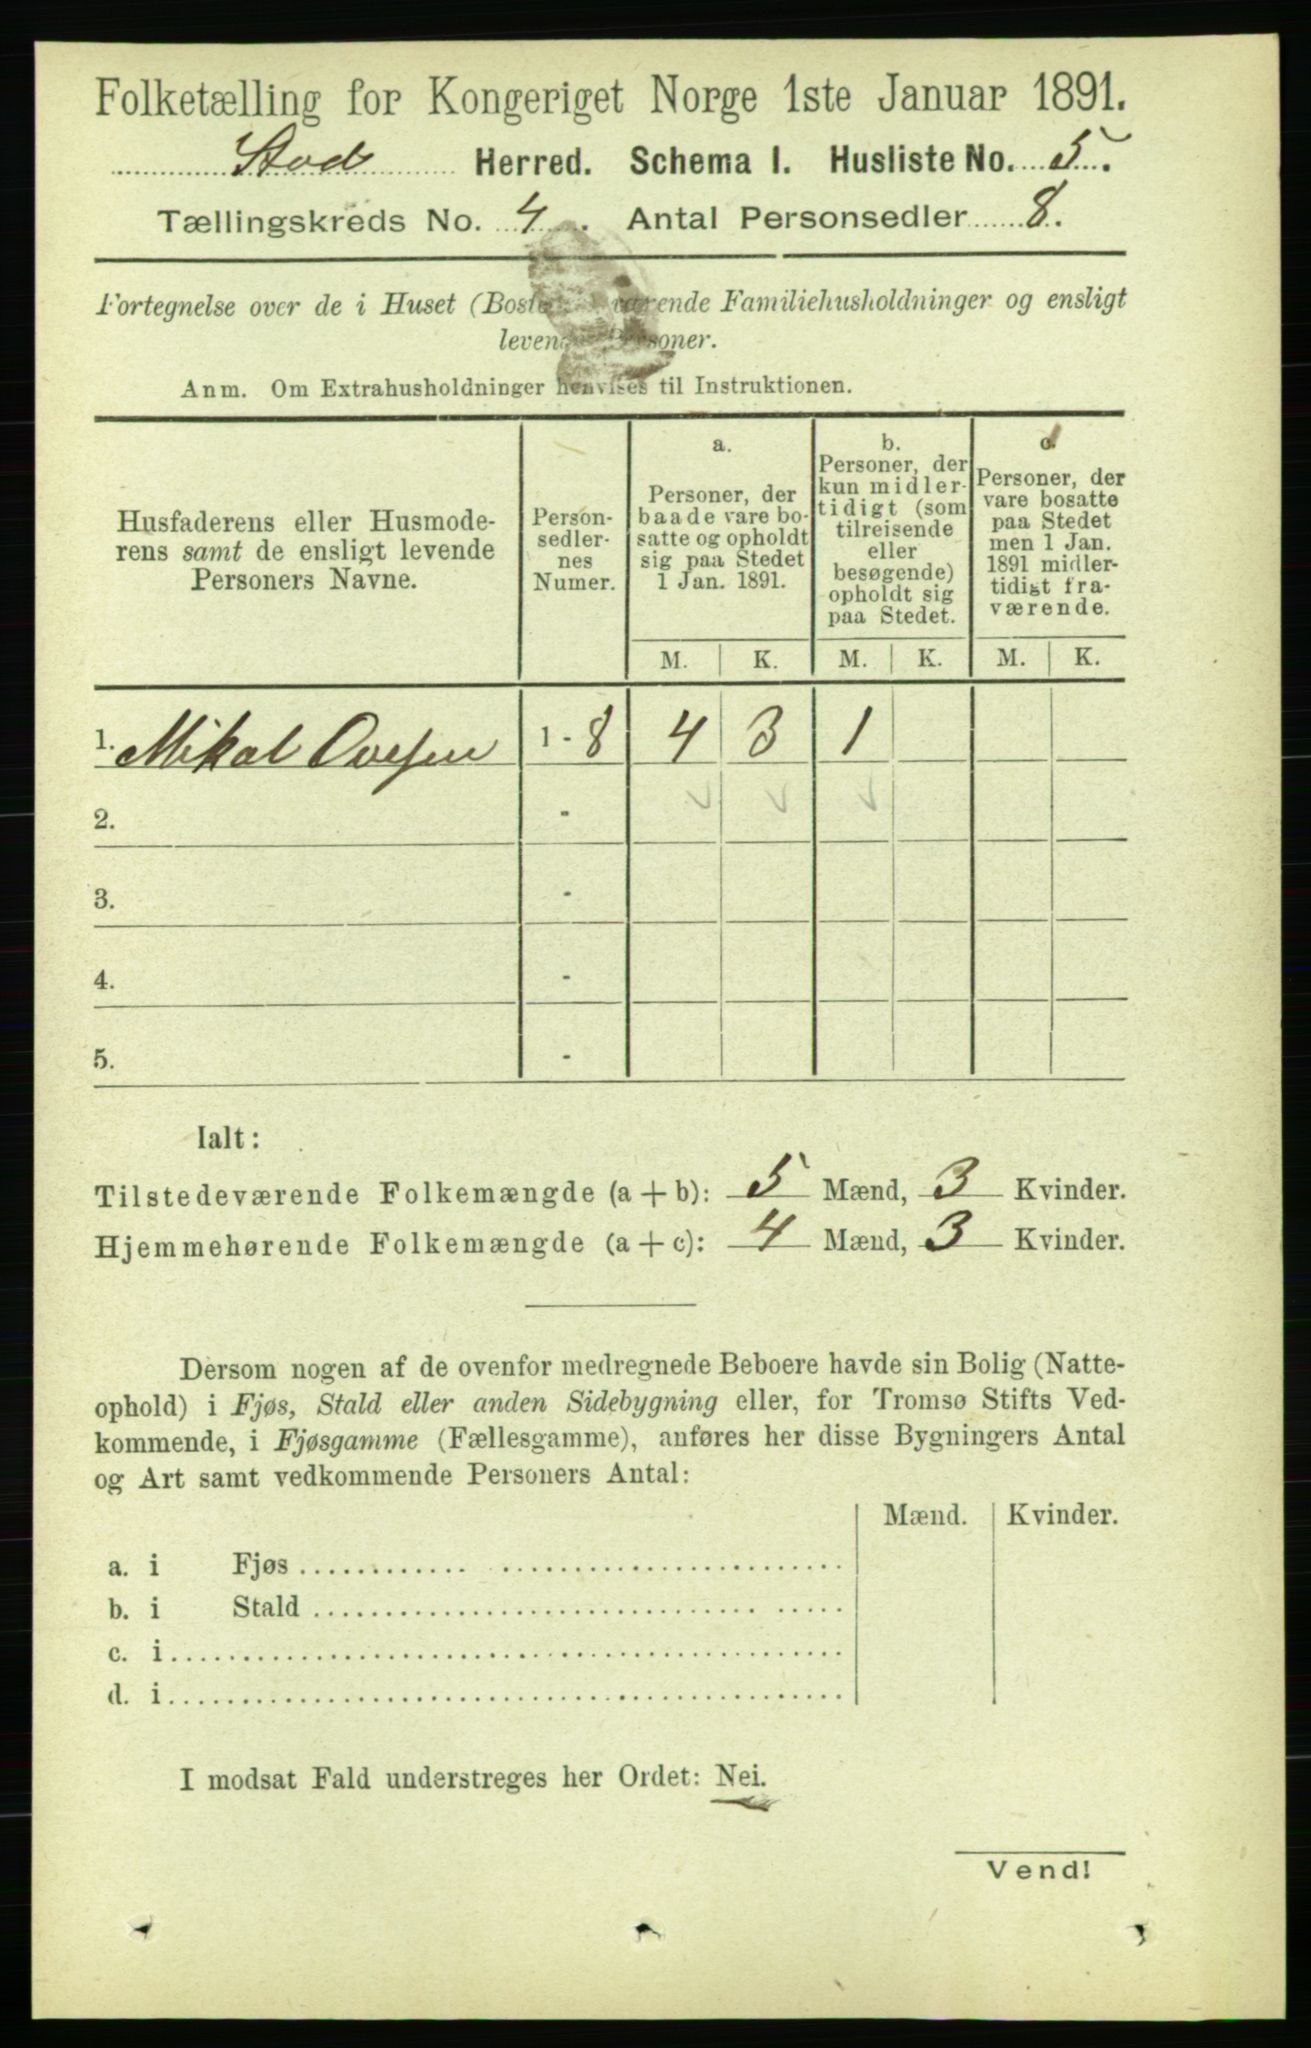 Folketælling for Kongeriget Norge 1ste Januar 1891.
Stod Herred. Schema I. Husliste No. 5.
Tællingskreds No. 4. Antal Personsedler 8.
Fortegnelse over de i Huset værende Familiehusholdninger og ensligt
Anm. Om Extrahusholdninger henvises til Instruktionen.
Husfaderens eller Husmode-
rens samt de ensligt levende
Personers Navne.
Person-
sedler-
nes
Numer.
a.
Personer, der
baade vare bo-
satte og opholdt
sig paa Stedet
1 Jan. 1891.
b.
Personer, der
kun midler-
tidigt (som
tilreisende
eller
besøgende)
opholdt sig
paa Stedet.
c.
Personer, der
vare bosatte
paa Stedet
men 1 Jan.
1891 midler-
tidigt fra-
værende.
M. K. M. K. M. K.
1. Mikal Ovesen 1 - 8 4 3 1
2. -
3. -
4. -
5. -
Ialt:
Tilstedeværende Folkemængde (a + b): 5 Mænd, 3 Kvinder.
Hjemmehørende Folkemængde (a + c): 4 Mænd, 3 Kvinder.
Dersom nogen af de ovenfor medregnede Beboere havde sin Bolig (Natte-
ophold) i Fjøs, Stald eller anden Sidebygning eller, for Tromsø Stifts Ved-
kommende, i Fjøsgamme (Fællesgamme), anføres her disse Bygningers Antal
og Art samt vedkommende Personers Antal:
Mænd. Kvinder.
a. i Fjøs
b. i Stald
c. i
d. i
I modsat Fald understreges her Ordet: Nei.
Vend!